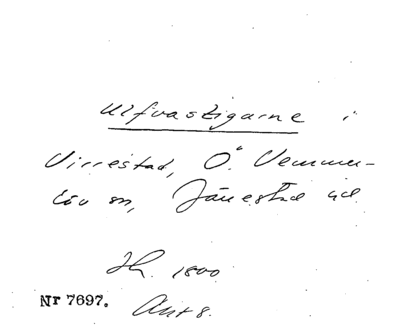 Ulfvastigarne i
Virrestad, Ö. Vemmen-
löv sn, Järrestad hd
Hh. 1800
Nr 7697. Ant 8.